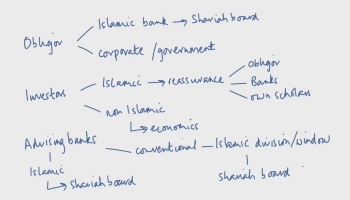 Islamic bank → Shariah board
Obligor
corporate/government
Obligor
Investors
Islamic → reassurance
Banks
own scholars
non Islamic
economics
Advising banks
conventional — Islamic division/window
Islamic
Shariah board
Shariah board